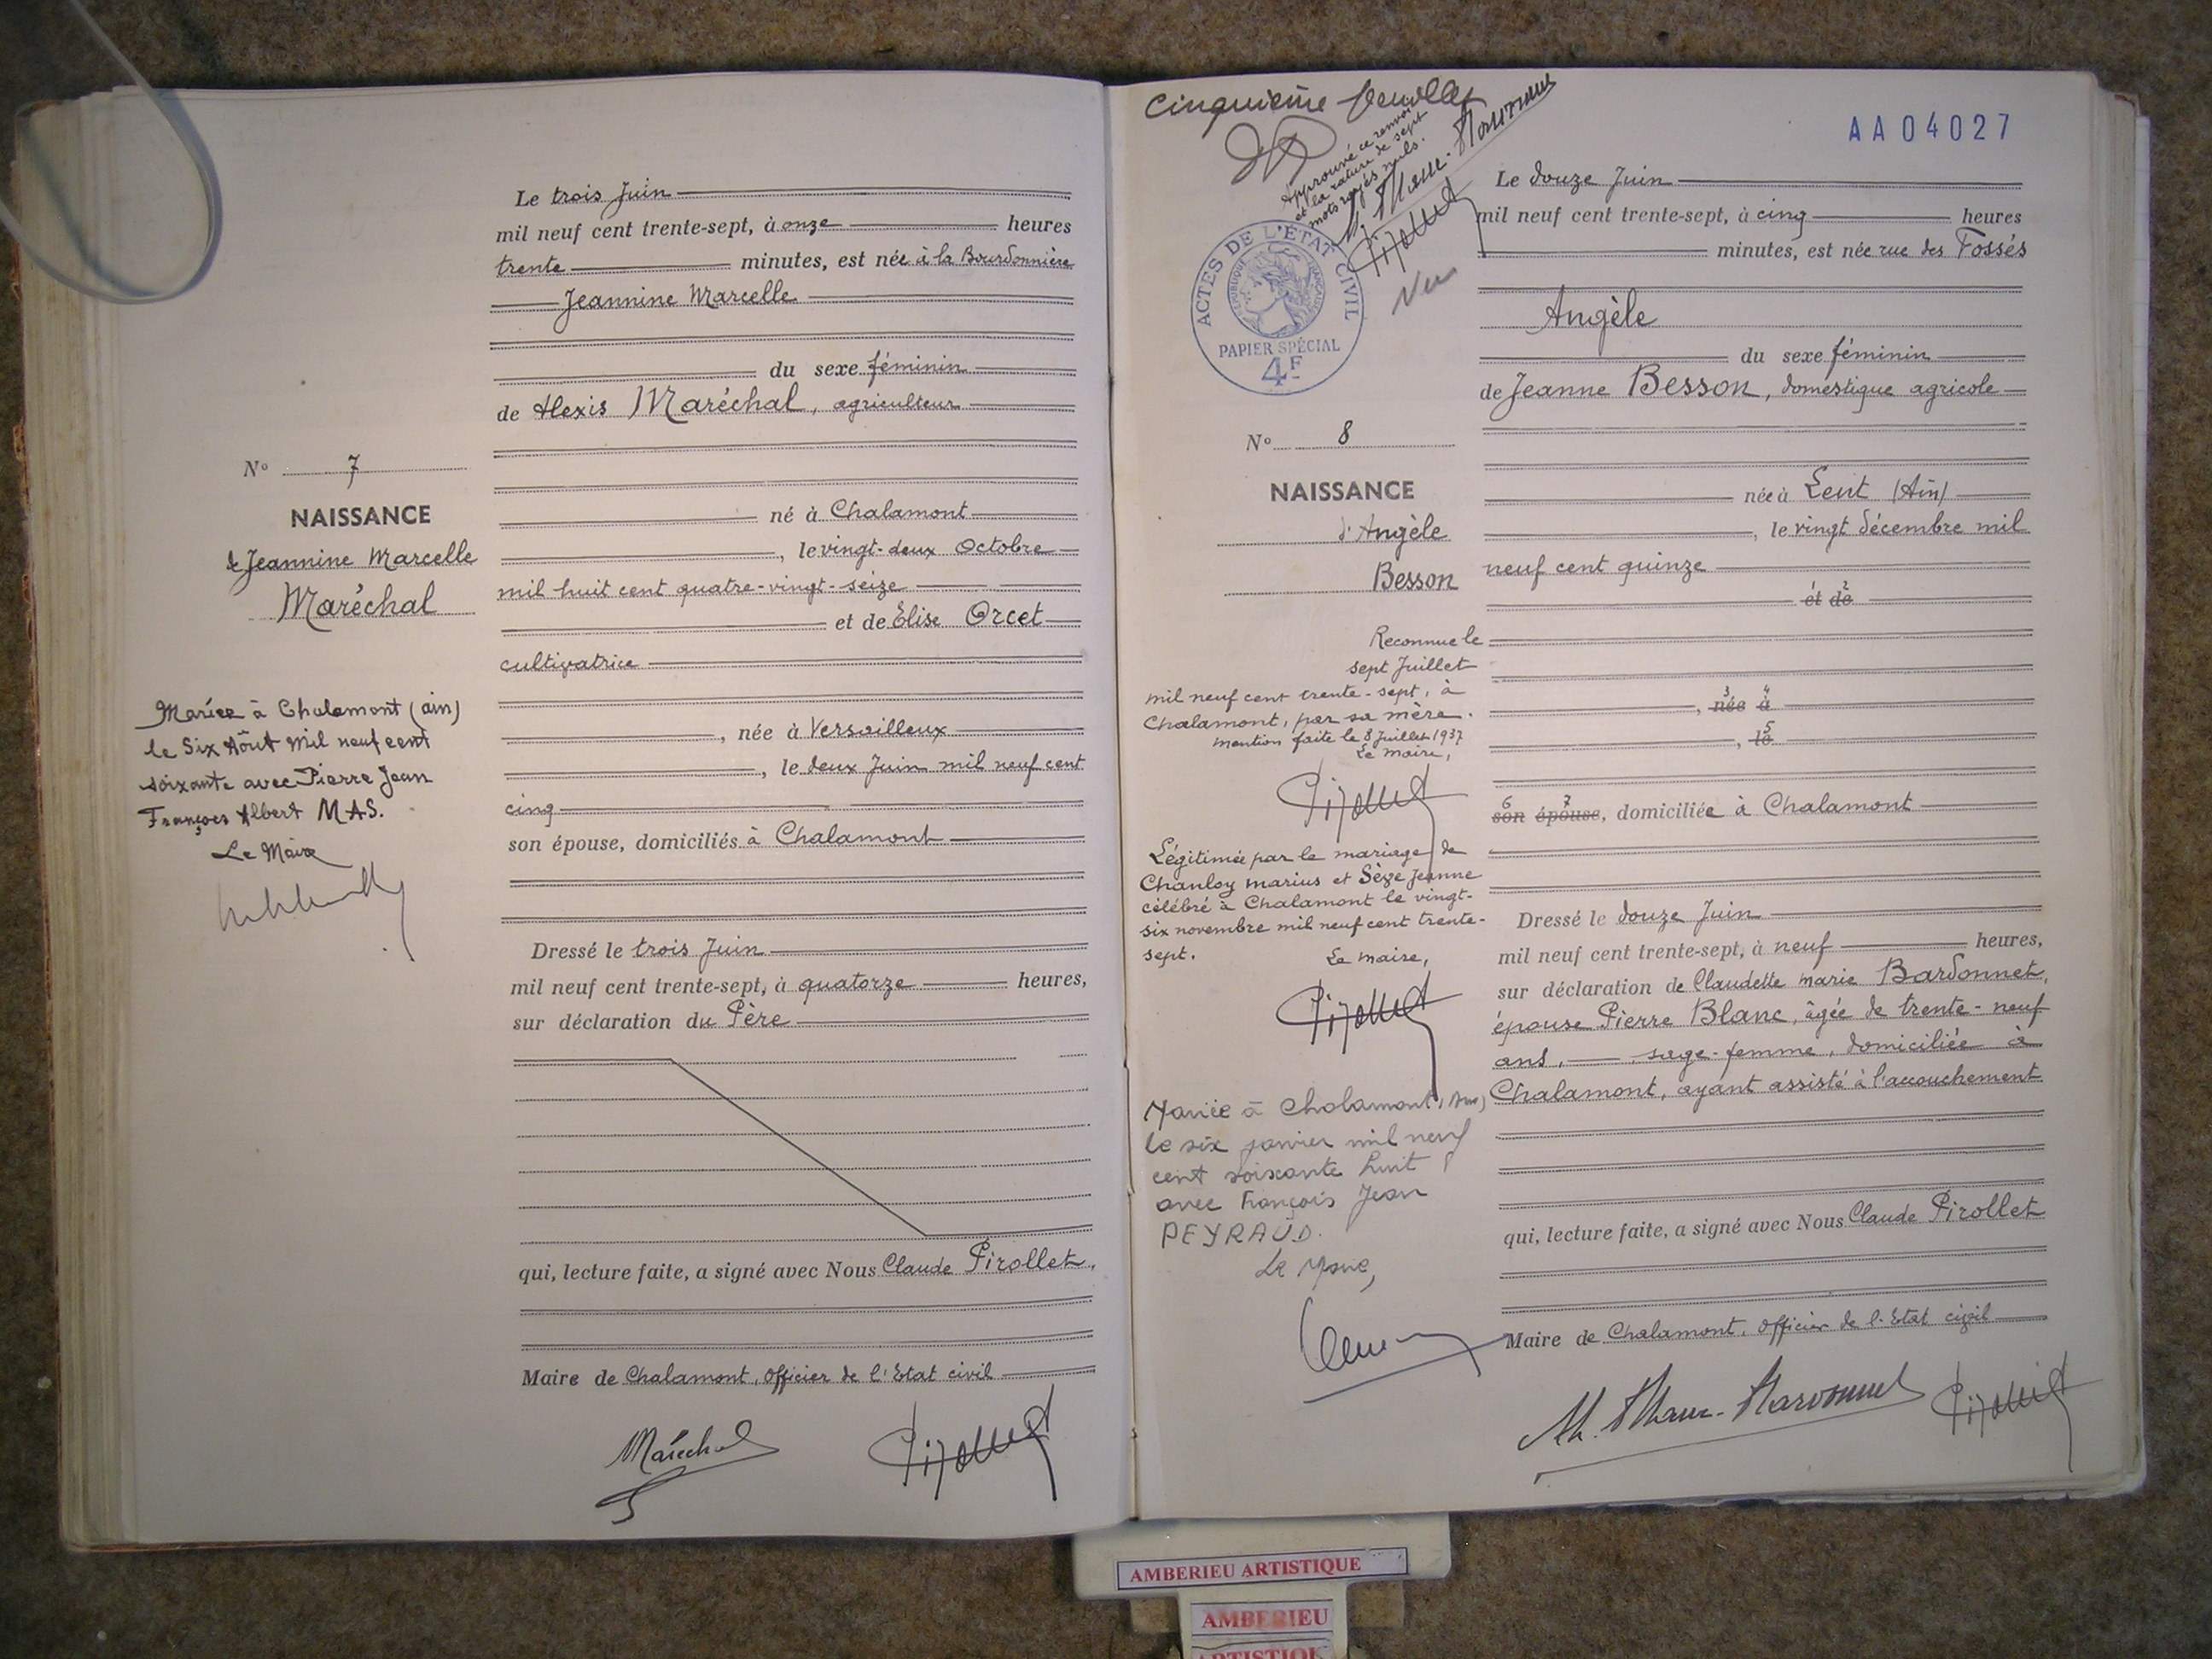 Le trois Juin
mil neuf cent trente-sept, à onze heures
trente minutes, est née à la Bourdonnière
Jeannine Marcelle
du sexe féminin
de Alexis Maréchal, agriculteur
né à Chalamont
, le vingt-deux Octobre
mil huit cent quatre-vingt-seize
et de Elise Orcet
cultivatrice
, née à Versailleux
, le deux Juin mil neuf cent
cinq
son épouse, domiciliés à Chalamont
Dressé le trois Juin
mil neuf cent trente-sept, à quatorze heures,
sur déclaration du Père
qui, lecture faite, a signé avec Nous Claude Pirollet,
Maire de Chalamont, Officier de l'Etat civil
Maréchal
N° 7
NAISSANCE
de Jeannine Marcelle
Maréchal
Mariée à Chalamont (ain)
le Six Aôut Mil neuf cent
soixante avec Pierre Jean
François Albert MAS.
Le Maire
Cinquième feuillet
Approuvé ce renvoi
et la rature de sept
mots rayés nuls.
Vu
AA04027
ACTES DE L'ÉTAT CIVIL
RÉPUBLIQUE FRANÇAISE
PAPIER SPÉCIAL
4F
N° 8
NAISSANCE
d'Angèle
Besson
Reconnue le
sept Juillet
mil neuf cent trente-sept, à
Chalamont, par sa mère.
mention faite le 8 Juillet 1937
Le maire,
Légitimée par le mariage de
Chanloy marius et Sège Jeanne
célébré à Chalamont le vingt-
six novembre mil neuf cent trente-
sept.
Le maire,
Mariée à Chalamont (Ain)
le six janvier mil neuf
cent soixante huit
avec François Jean
PEYRAUD.
Le Maire,
Le douze Juin
mil neuf cent trente-sept, à cinq heures
minutes, est née rue des Fossés
Angèle
du sexe féminin
de Jeanne Besson, domestique agricole
née à Lent (Ain)
, le vingt décembre mil
neuf cent quinze
1 2
et de
3 4
, née à
5
, le
6 7
son épouse, domiciliée à Chalamont
Dressé le douze Juin
mil neuf cent trente-sept, à neuf heures,
sur déclaration de Claudette marie Bardonnet,
épouse Pierre Blanc, âgée de trente-neuf
ans, sage-femme, domiciliée à
Chalamont, ayant assisté à l'accouchement
qui, lecture faite, a signé avec Nous Claude Pirollet
Maire de Chalamont, Officier de l'Etat civil
AMBERIEU ARTISTIQUE
AMBERIEU
ARTISTIQUE